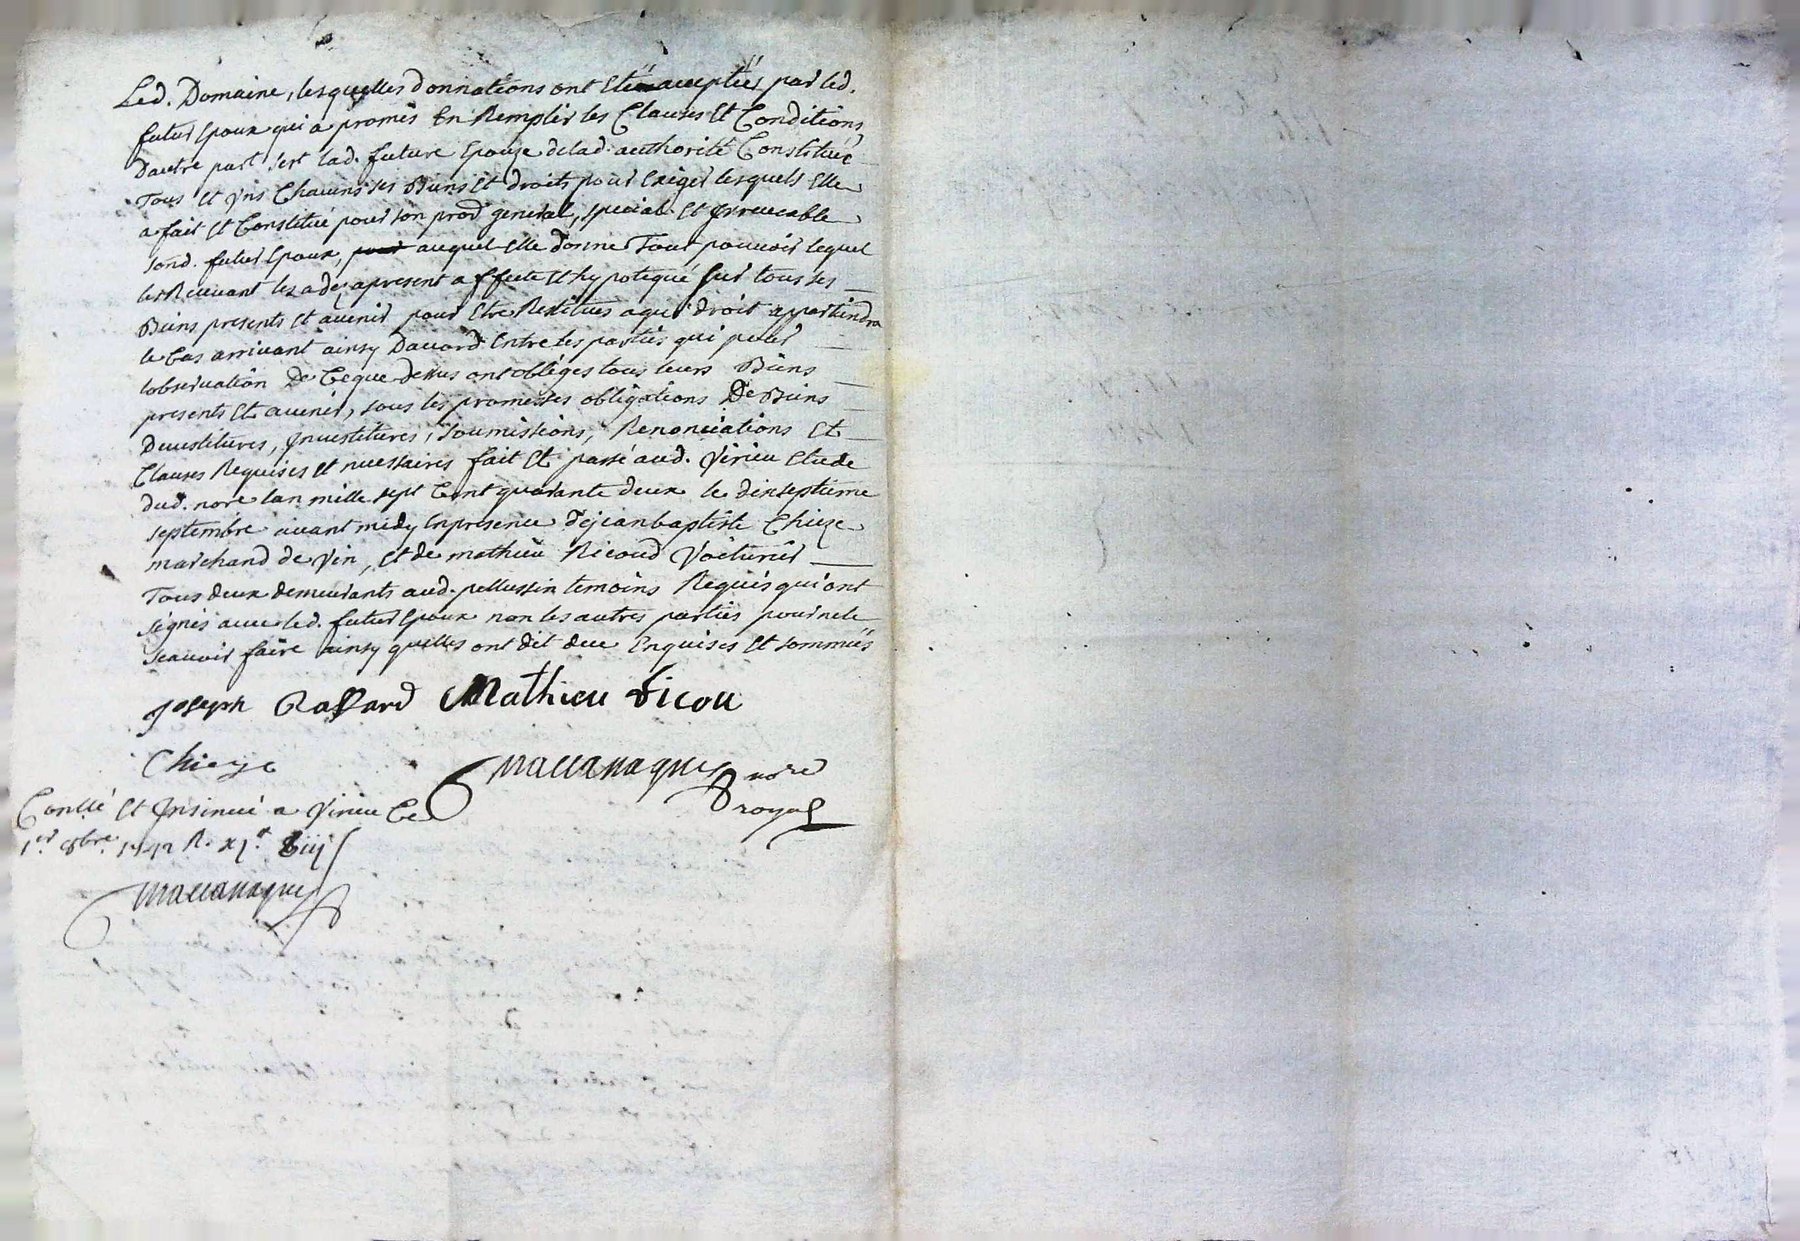 Led. Domaine, lesquelles donnations ont eté acceptées par led.
futur Epoux qui a promis En Remplir les Clauses Et Conditions
Dautre part s'est lad. future Epouze delad. authorité Constituée
Tous Et Uns Chacuns ses Biens Et droits pour Exiger lesquels Elle
a fait Et Constitué pour son prod general, special Et Irrevocable
sond. futur Epoux, auquel Elle donne Tout pouvoir lequel
les Recevant les a des apresent affecté Et hypotequé sur tous ses
Biens presents Et avenir pour Etre Restitues a qui droit appartiendra
le Cas arrivant ainsy Daccord Entre les parties qui pour
lobservation De Ce que dessus ont obligés tous leurs Biens
presents Et avenir, sous les promesses obligations De Biens
Devestitures, Investitures, soumissions, Renonciations Et
Clauses Requises Et necessaires fait Et passé aud. Virieu Etude
dud. nore lan mille sept Cent quarante deux le dixseptieme
septembre avant midy En presence de jean baptiste Chieze
marchand de vin, Et de mathieu Ricoud Voiturier
Tous deux demeurants aud. pellussin temoins Requis qui ont
signés avec led. futur Epoux non les autres parties pour ne le
scavoir faire ainsy quelles ont dit deue Enquises Et sommées
Joseph Raffard Mathieu Ricou
Chieze
Maccanaque nore
royal
Conllé Et Insinué a Virieu Ce
1er 8bre 1742 R.
Maccanaque